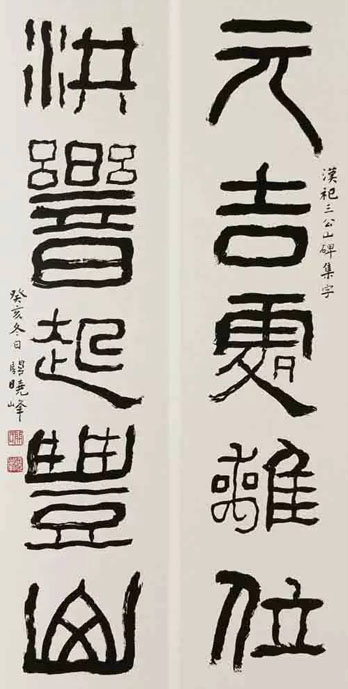 元吉處離位
漢祀三公山碑集字
洪響起豐山
癸亥冬日 曉峰